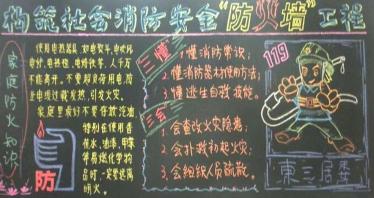 构筑社会消防安全"防火墙"工程
家庭防火知识
使用电热器具，如电烫斗、电吹风
电炉、电热毯、电烤铁等，人千万
不能离开。不要超负荷用电，防
止电线过载发热，引发火灾。
家庭里最好不要存放汽油
特别在使用香
蕉水、油漆、甲苯
等易燃化学物
品时，一定要远离
明火。
防
三懂
1 懂消防常识；
2 懂消防器材使用方法；
3 懂逃生自救技能。
三会
1 会查改火灾隐患；
2 会扑救初起火灾；
3 会组织人员疏散。
119
東三居委